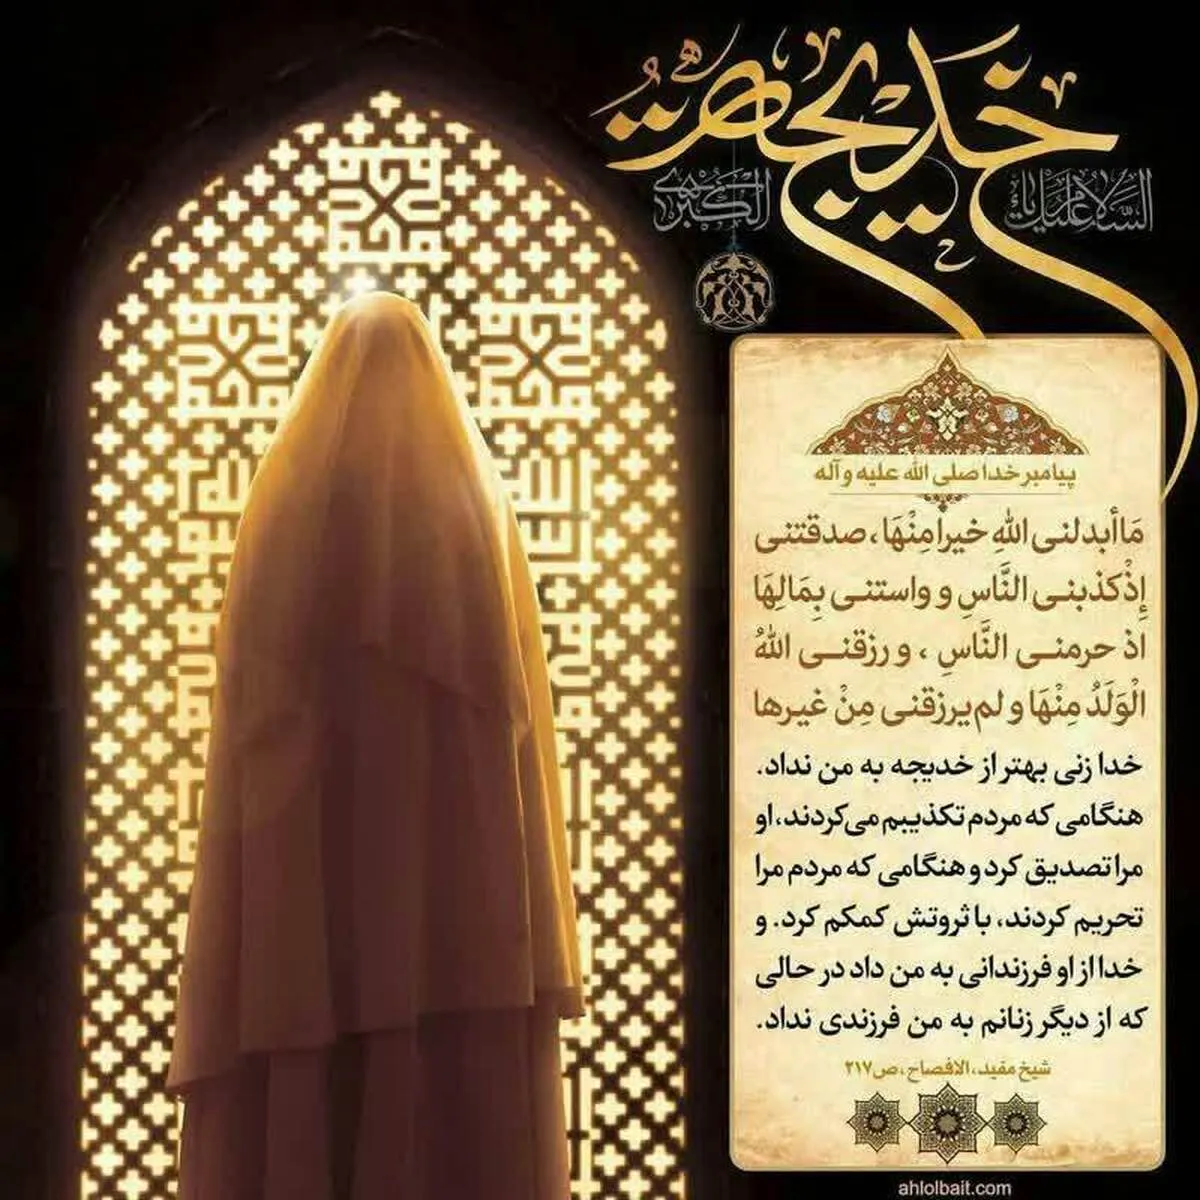 السلام علیک یا
خدیجة
الکبری
پیامبر خدا صلی الله علیه و آله
مَا أبدلنی اللهِ خیرا مِنْهَا، صدقتنی
إِذْ کذبنی النَّاسِ و واستنی بِمَالِهَا
اذ حرمنی النَّاسِ ، و رزقنی اللهُ
الْوَلَدُ مِنْهَا و لم یرزقنی مِنْ غیرها
خدا زنی بهتر از خدیجه به من نداد.
هنگامی که مردم تکذیبم می‌کردند، او
مرا تصدیق کرد و هنگامی که مردم مرا
تحریم کردند، با ثروتش کمکم کرد. و
خدا از او فرزندانی به من داد در حالی
که از دیگر زنانم به من فرزندی نداد.
شیخ مفید، الافصاح ، ص۲۱۷
ahlolbait.com